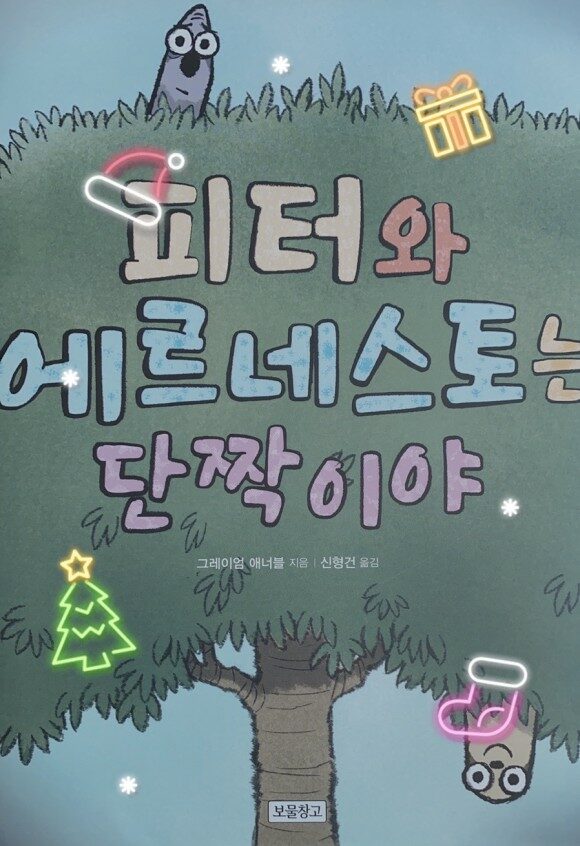 피터와
에르네스토는
단짝이야
그레이엄 애너블 지음 | 신형건 옮김
보물창고